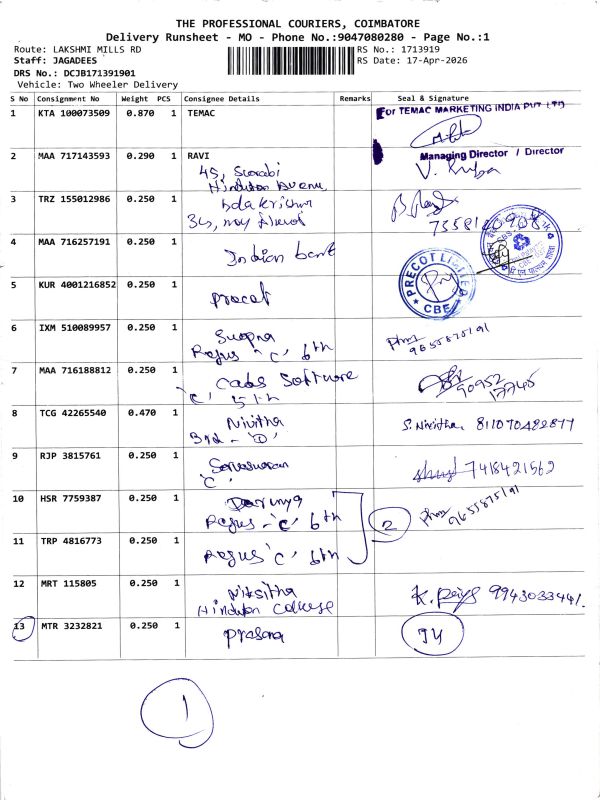 THE PROFESSIONAL COURIERS, COIMBATORE
Delivery Runsheet - MO - Phone No.:9047080280 - Page No.:1
Route: LAKSHMI MILLS RD
RS No.: 1713919
Staff: JAGADEES
RS Date: 17-Apr-2026
DRS No.: DCJB171391901
Vehicle: Two Wheeler Delivery
S No Consignment No Weight PCS Consignee Details Remarks Seal & Signature
1 KTA 100073509 0.870 1 TEMAC For TEMAC MARKETING INDIA PVT LTD
Managing Director / Director
2 MAA 717143593 0.290 1 RAVI
45,
Hindustan Avenu
3 TRZ 155012986 0.250 1
34,
4 MAA 716257191 0.250 1 Indian bank
5 KUR 4001216852 0.250 1 precot PRECOT LIMITED CBE
6 IXM 510089957 0.250 1
Rejus "C" 6th 9655875191
7 MAA 716188812 0.250 1 Cads Software 90952
"C" 5th 17745
8 TCG 42265540 0.470 1 Nivitha S. Nivitha 811070482877
3rd - "D"
9 RJP 3815761 0.250 1 7418421562
"C"
10 HSR 7759387 0.250 1
Rejus - "C" 6th 2 9655875191
11 TRP 4816773 0.250 1
Rejus "C" 6th
12 MRT 115805 0.250 1 Niksitha K. 9943033441.
Hindustan College
13 MTR 3232821 0.250 1 prasana
1